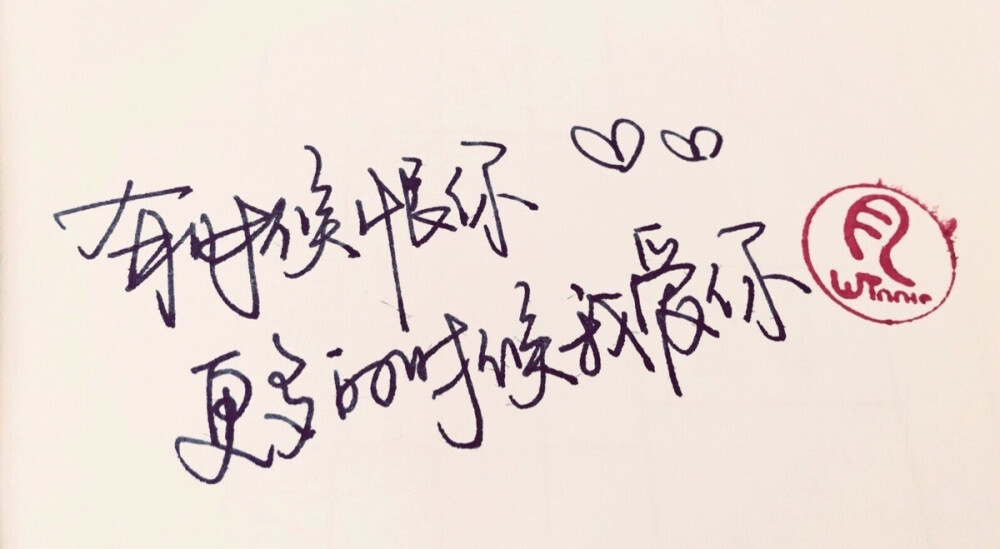 有时候恨你
更多的时候我爱你
Winnie